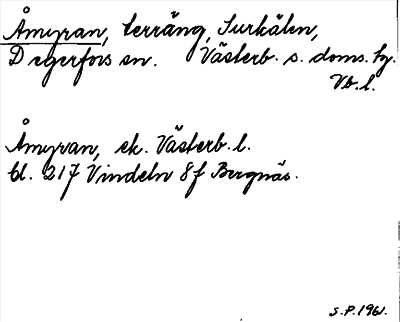 Åmyran, terräng, Surkälen,
Degerfors sn. Västerb. s. doms. hg.
Vb. l.
Åmyran, ek. Västerb. l.
bl. 217 Vindeln 8f Bergnäs.
S.P. 1961.